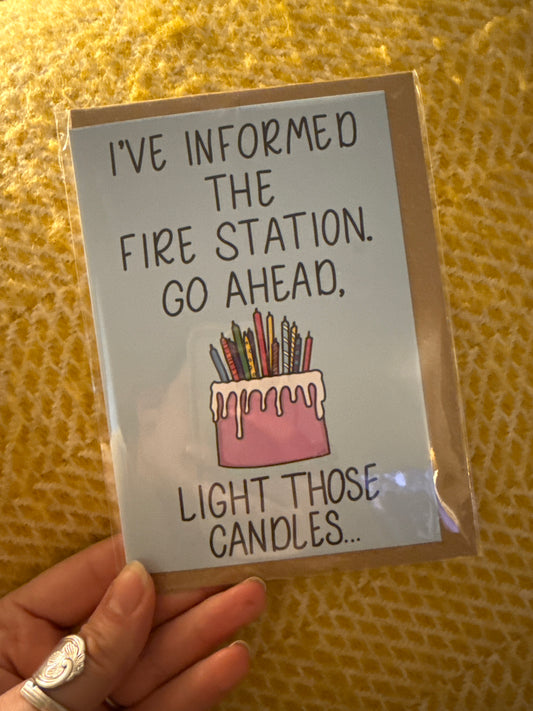 I'VE INFORMED
THE
FIRE STATION.
GO AHEAD,
LIGHT THOSE
CANDLES...